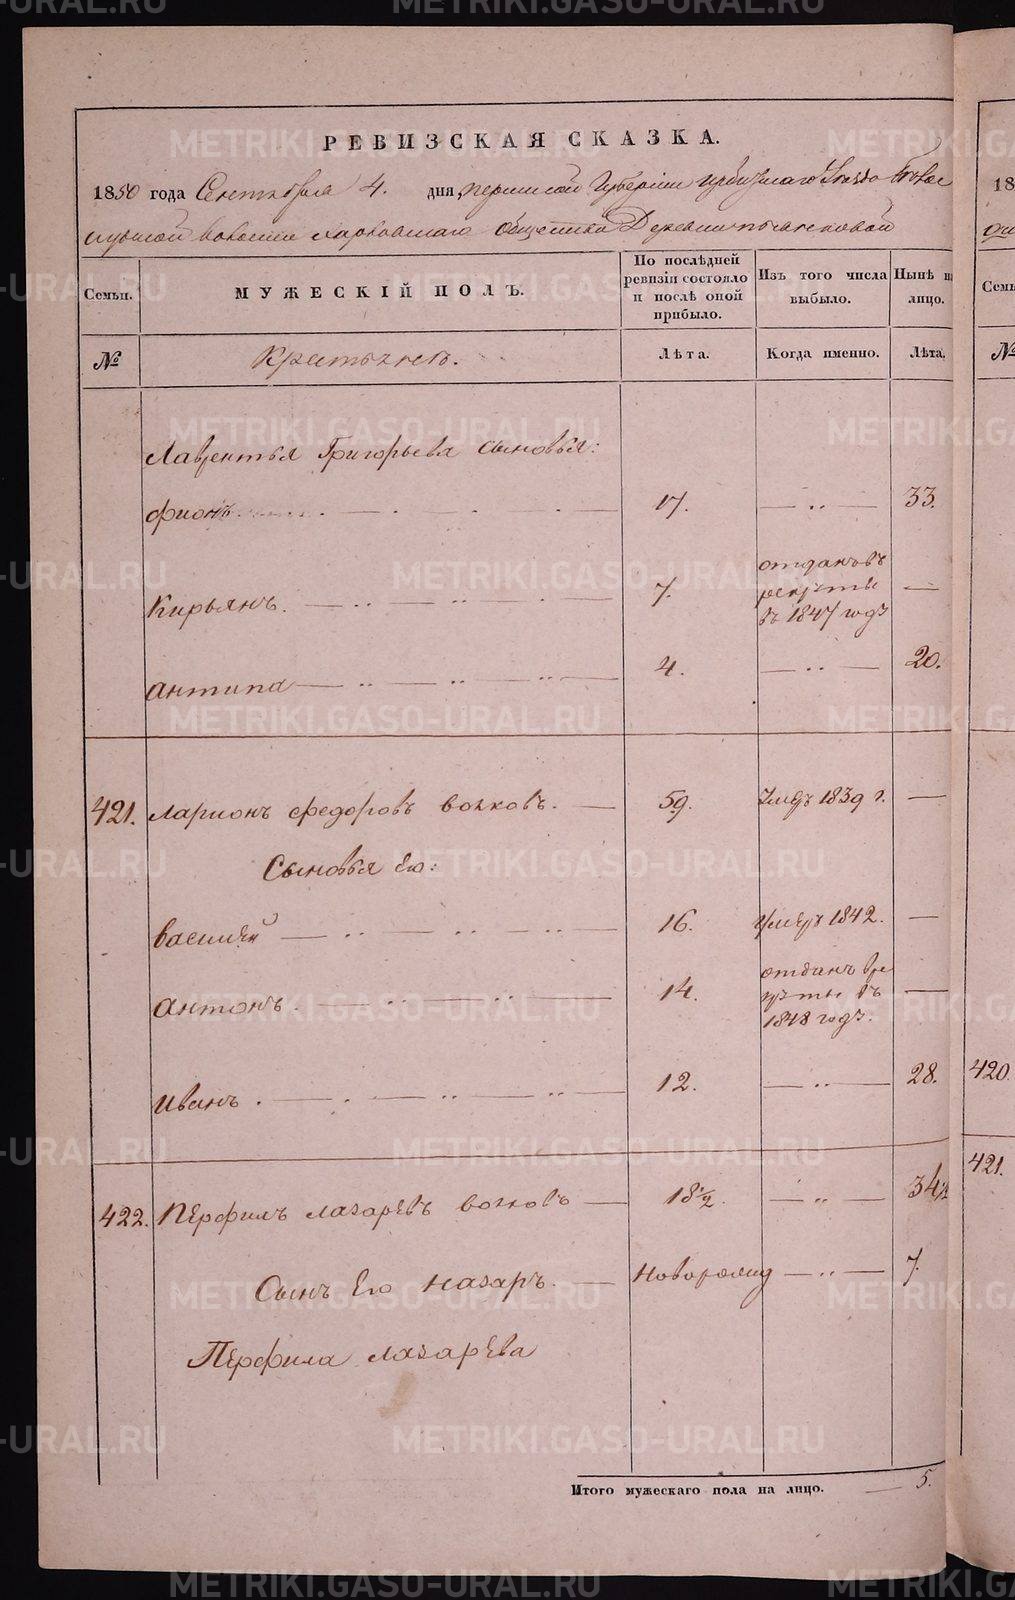 РЕВИЗСКАЯ СКАЗКА.
1850 года Сентября 4. дня, пермской Губернии Ирбитскаго
волости Харловскаго Общества Деревни
Семьи.
МУЖЕСКІЙ ПОЛЪ.
По послѣдней ревизіи состояло и послѣ оной прибыло.
Изъ того числа выбыло.
Нынѣ на лицо.
№
Крестьянъ.
Лѣта.
Когда именно.
Лѣта.
Лаврентья Григорьева сыновья:
фионъ 17. 33.
Кирьянъ. 7. отданъ въ рекруты въ 1847 годѣ
антипа 4. 20.
421. Ларионъ федоровъ волковъ. 59. Умеръ 1839 г.
Сыновья Его:
василей 16. умеръ 1842.
антонъ. 14. отданъ в рекруты въ 1848 годѣ.
иванъ. 12. 28.
422. Перфилъ лазаревъ волковъ 18 1/2. 34 1/2
Сынъ Его назаръ. новорожд 7.
Перфила лазарева
Итого мужескаго пола на лицо. 5.
18
Семьи
№
420.
421.
METRIKI.GASO-URAL.RU